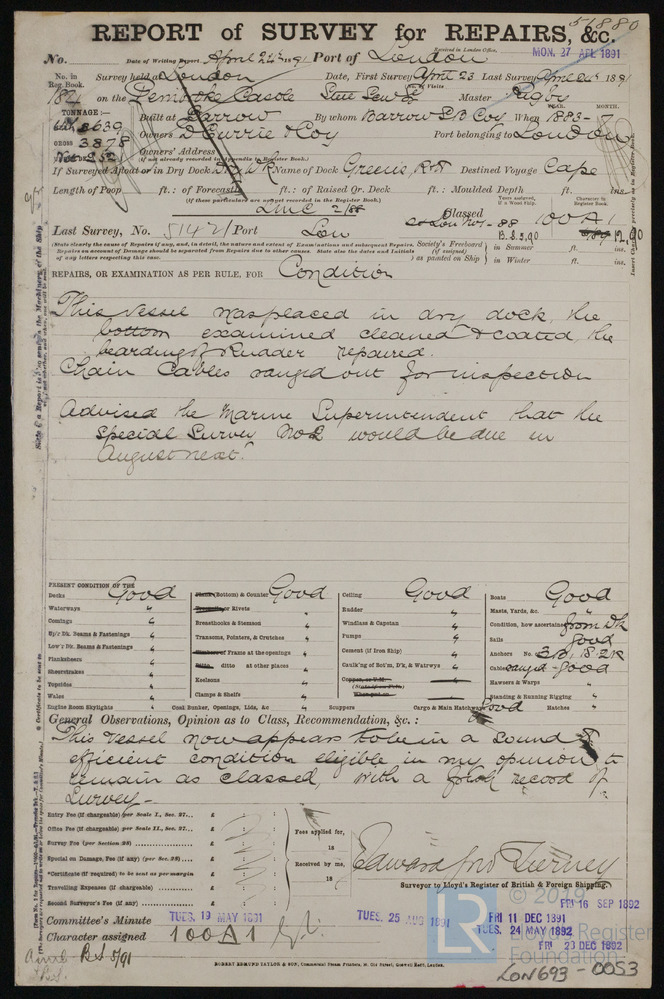 51880
REPORT of SURVEY for REPAIRS, &c.
Received in London Office,
MON. 27 APL 1891
No. Date of Writing Report April 24th 1891 Port of London
No. in Reg. Book. Survey held at London Date, First Survey April 23 Last Survey April 24th 1891
No. of Visits
184 on the Pembroke Castle Master Rigby
TONNAGE:— Built at Barrow By whom Barrow S B Coy When 1883-7
YEAR. MONTH.
2639
GROSS 3878 Owners D Currie & Coy Port belonging to London
Owners' Address
(if not already recorded in Appendix to Register Book.)
If Surveyed Afloat or in Dry Dock Name of Dock Green's, Destined Voyage Cape
Length of Poop ft.: of Forecastle ft.: of Raised Qr. Deck ft.: Moulded Depth ft. ins.
(if these particulars are not yet recorded in the Register Book.)
LMC Classed 100 A 1
Last Survey, No. 5142 / Port Lon
B.S. 3,90 12,90
(State clearly the cause of Repairs if any, and, in detail, the nature and extent of Examinations and subsequent Repairs.
Repairs on account of Damage should be separated from Repairs due to other causes. State also the dates and Initials of any letters respecting this case.
Society's Freeboard (if assigned) as painted on Ship in Summer ft. ins.
in Winter ft. ins.
REPAIRS, OR EXAMINATION AS PER RULE, FOR Condition
This vessel was placed in dry dock, the
bottom examined cleaned & coated, the
beardings of Rudder repaired.
Chain Cables ranged out for inspection
Advised the Marine Superintendent that the
Special Survey No 2 would be due in
August next.
PRESENT CONDITION OF THE
Decks Good
Waterways "
Comings "
Up'r Dk. Beams & Fastenings "
Low'r Dk. Beams & Fastenings "
Planksheers "
Sheerstrakes "
Topsides "
Wales "
Engine Room Skylights "
Plank (Bottom) & Counter Good
Treenails, or Rivets "
Breasthooks & Stemson "
Transoms, Pointers, & Crutches "
Timbers or Frame at the openings "
Ditto ditto at other places "
Keelsons "
Clamps & Shelfs "
Coal Bunker, Openings, Lids, &c "
Ceiling Good
Rudder "
Windlass & Capstan "
Pumps "
Cement (if Iron Ship) "
Caulk'ng of Bot'm, D'k, & Watrwys "
Copper, or Y.M.
Scuppers "
Cargo & Main Hatchways Good
Boats Good
Masts, Yards, &c. "
Condition, how ascertained from Dk
Sails Good
Anchors No. 3B, 1S. 2K
Cables ranged - good
Hawsers & Warps "
Standing & Running Rigging "
Hatches "
General Observations, Opinion as to Class, Recommendation, &c. :
This vessel now appears to be in a sound &
efficient condition eligible in my opinion to
remain as classed, with a fresh record of
Survey -
Entry Fee (if chargeable) per Scale I., Sec. 27... £ : :
Office Fee (if chargeable) per Scale II., Sec. 27... £ : :
Survey Fee (per Section 28) £ : :
Special on Damage, Fee (if any) (per Sec. 28).... £ : :
*Certificate (if required) to be sent as per margin £ : :
Travelling Expenses (if chargeable) £ : :
Second Surveyor's Fee (if any) £ : :
Fees applied for, 18
Received by me, 18
Edward Jno Tierney
Surveyor to Lloyd's Register of British & Foreign Shipping.
Committee's Minute TUES. 19 MAY 1891 TUES. 25 AUG 1891 FRI 11 DEC 1891 TUES. 24 MAY 1892 FRI 16 SEP 1892 FRI 23 DEC 1892
Character assigned 100A1
B.S 5/91
ROBERT EDMUND TAYLOR & SON, Commercial Steam Printers, 19, Old Street, Goswell Road, London.
LR
© 2019
Lloyd's Register
Foundation
LON693 - 0053